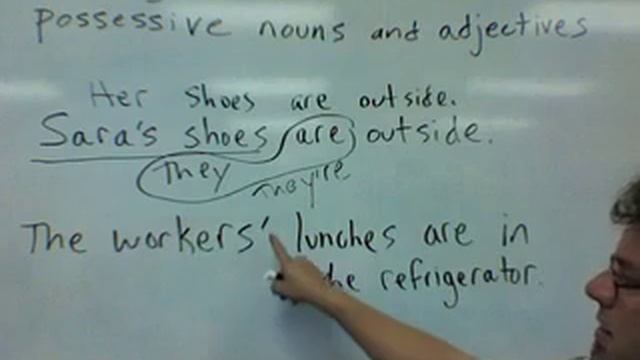 possessive nouns and adjectives
Her shoes are outside.
Sara's shoes are outside.
They They're
The workers' lunches are in
the refrigerator.